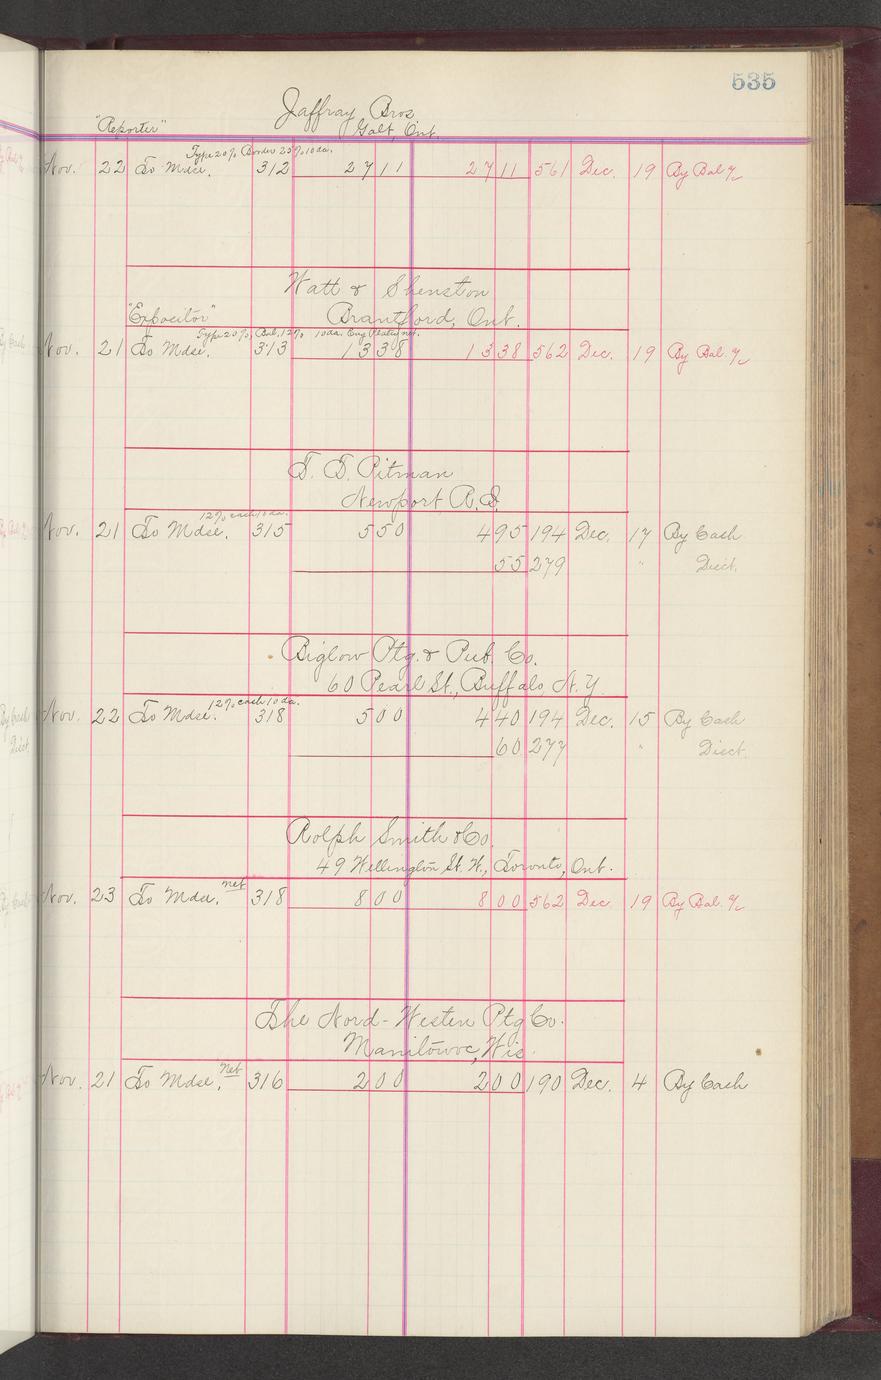 535
Jaffray Bros
"Reporter" Galt, Ont.
Type 20% Border 25% 10 da.
Nov. 22 To Mdse. 312 27 11 27 11 561 Dec. 19 By Bal %
Watt & Shenston
"Expositor" Brantford, Ont.
Type 20%, Bal. 12% 10 da. Eng Plates net.
Nov. 21 To Mdse. 313 13 38 13 38 562 Dec. 19 By Bal. %
T. T. Pitman
Newport R.I.
12% cash 10 da.
Nov. 21 To Mdse. 315 5 50 4 95 194 Dec. 17 By Cash
55 279 " Disct.
Biglow Ptg. & Pub. Co.
60 Pearl St., Buffalo, N.Y.
12% cash 10 da.
Nov. 22 To Mdse. 318 5 00 4 40 194 Dec. 15 By Cash
60 277 " Disct.
Rolph Smith & Co.
49 Wellington St. W., Toronto, Ont.
Nov. 23 To Mdse. net 318 8 00 8 00 562 Dec. 19 By Bal. %
The Nord-Westen Ptg Co.
Manitowoc, Wis.
Nov. 21 To Mdse. net 316 2 00 2 00 190 Dec. 4 By Cash